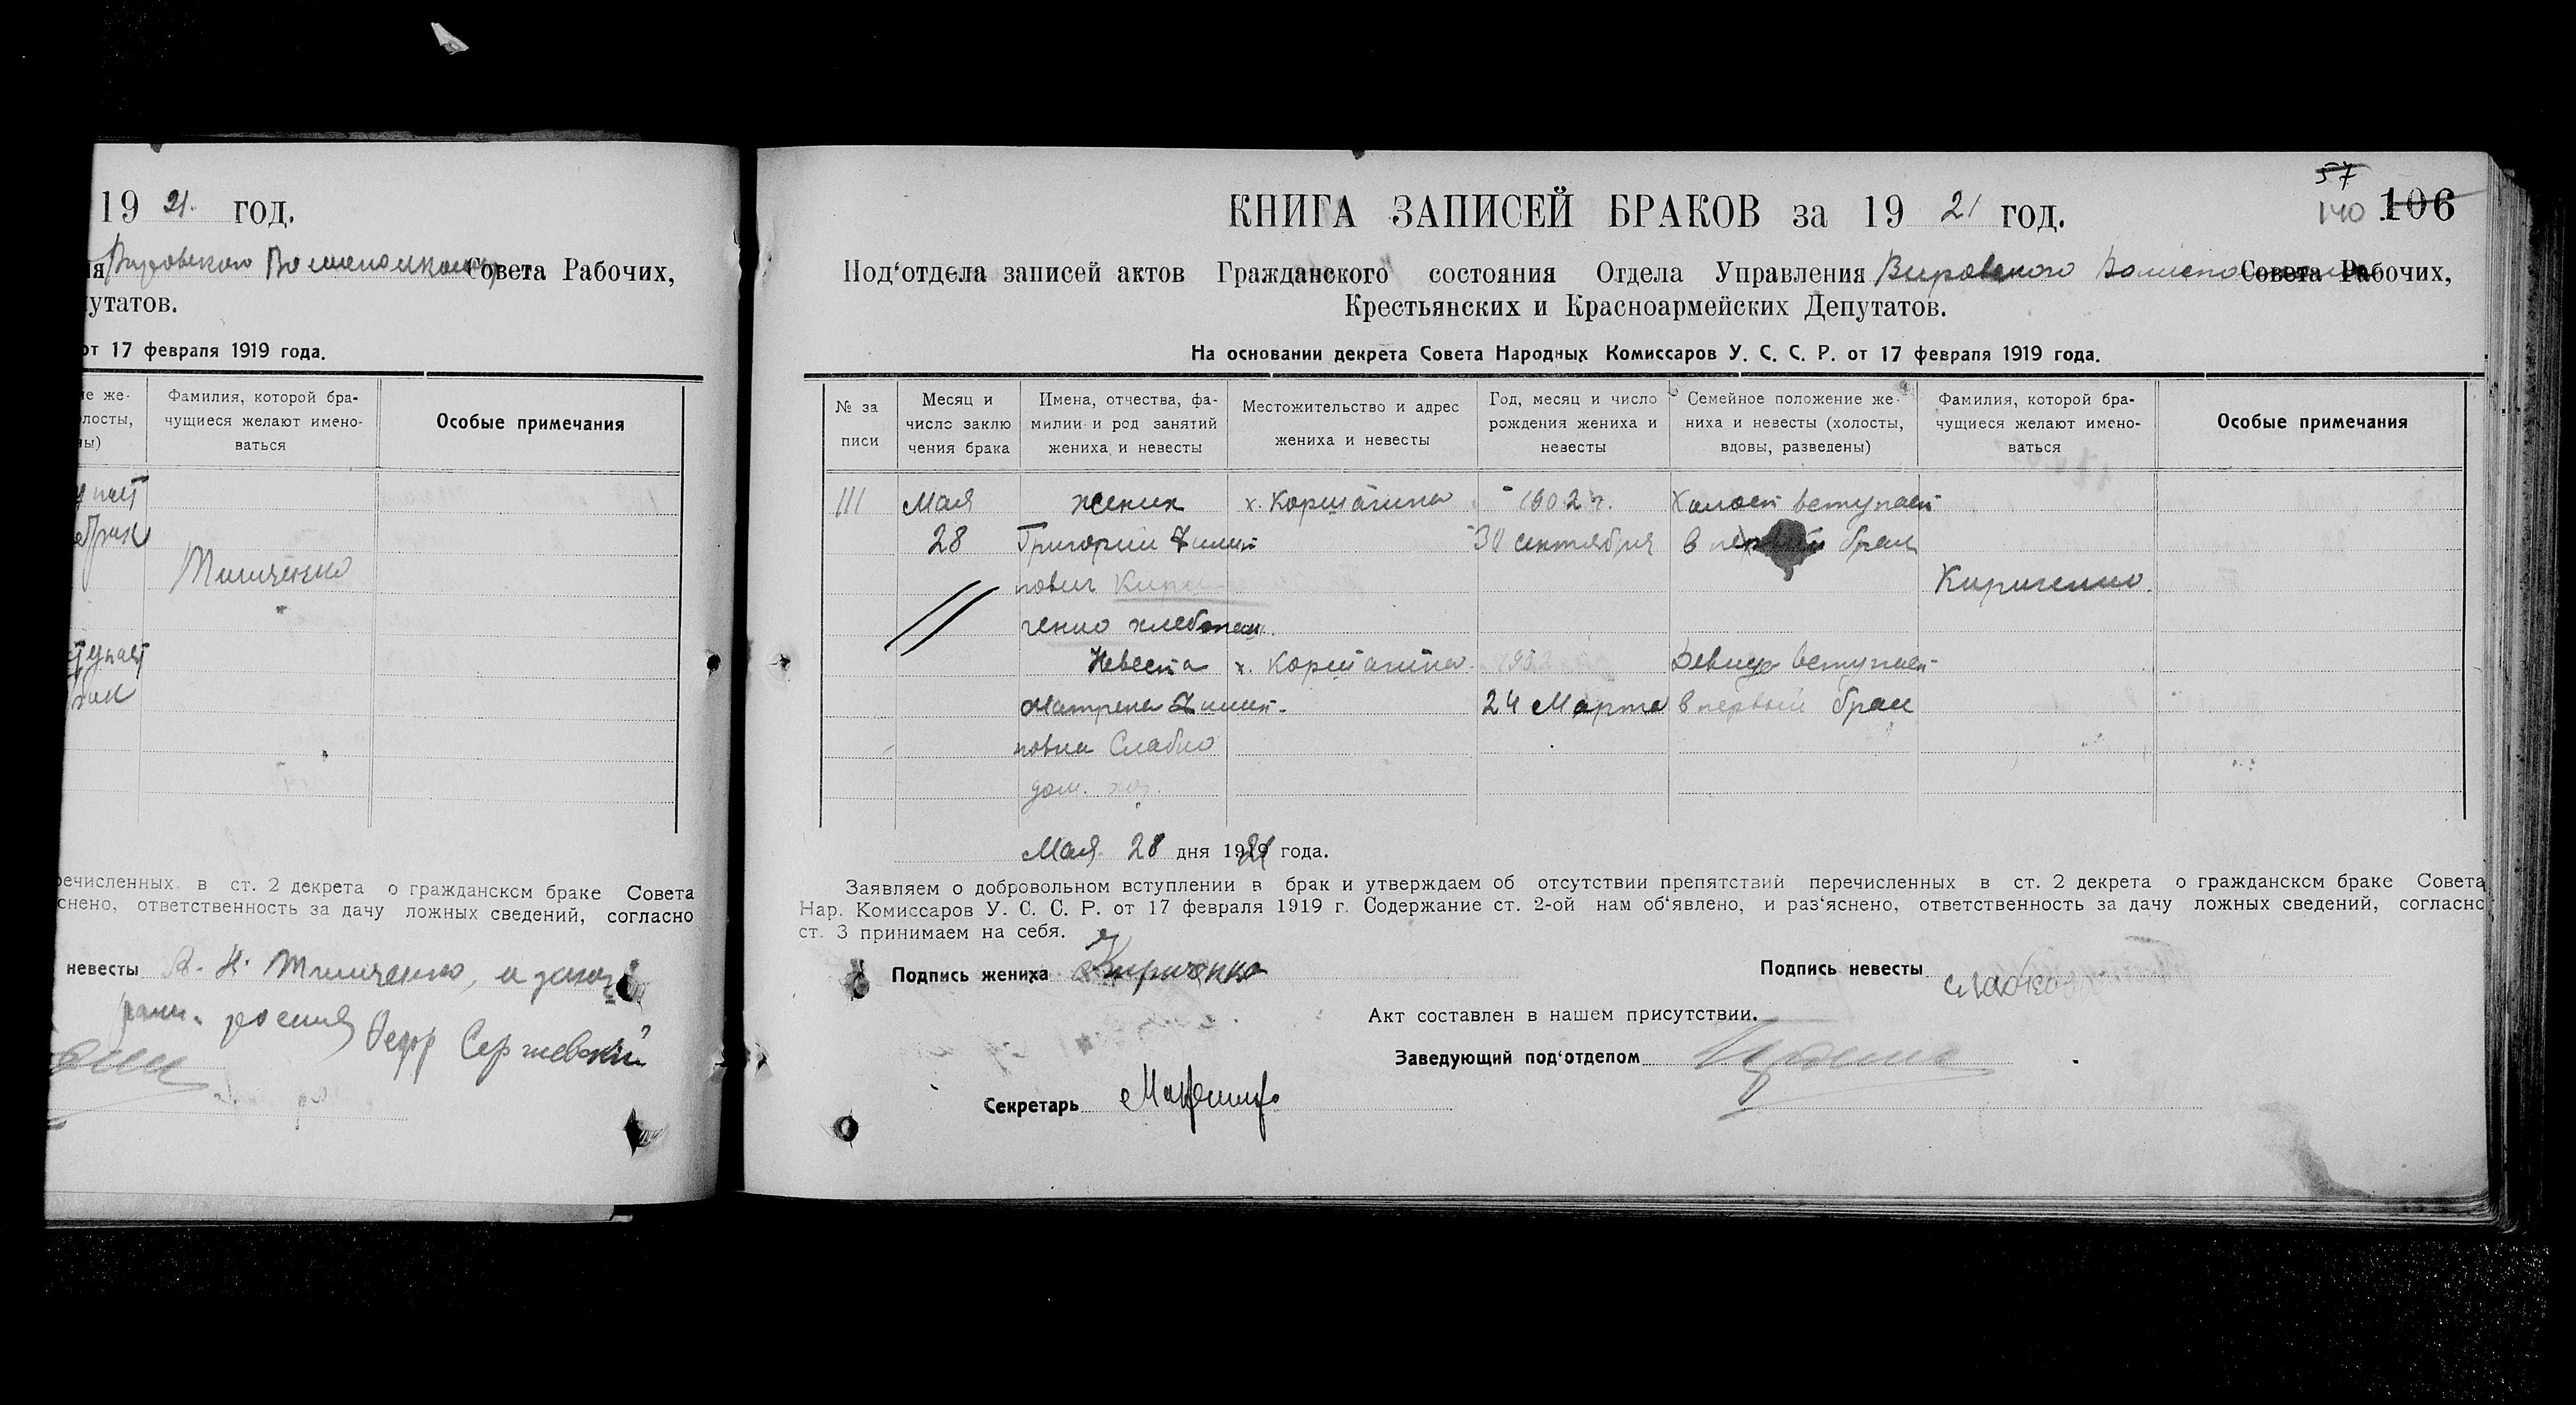 19 21. год.
Вировского Волисполкома Совета Рабочих,
утатов.
от 17 февраля 1919 года.
Фамилия, которой бра-
чущиеся желают имено-
ваться
Особые примечания
Тимченко
речисленных в ст. 2 декрета о гражданском браке Совета
снено, ответственность за дачу ложных сведений, согласно
невесты Тимченко, а
Сергиевский
57
140 106
КНИГА ЗАПИСЕЙ БРАКОВ за 19 21 год.
Под‘отдела записей актов Гражданского состояния Отдела Управления Вировского Совета Рабочих,
Крестьянских и Красноармейских Депутатов.
На основании декрета Совета Народных Комиссаров У. С. С. Р. от 17 февраля 1919 года.
№ за
писи
Месяц и
число заклю
чения брака
Имена, отчества, фа-
милии и род занятий
жениха и невесты
Местожительство и адрес
жениха и невесты
Год, месяц и число
рождения жениха и
невесты
Семейное положение же-
ниха и невесты (холосты,
вдовы, разведены)
Фамилия, которой бра-
чущиеся желают имено-
ваться
Особые примечания
111 Мая жених х. Коршачина 1902 г. Холост вступает
28 Григорий Филип 30 сентября в первый брак
пович Кири
Кириченко
ченко хлебопаш.
Невеста х. Коршачина Девица вступает
Матрена Филип- 24 Марта в первый брак
повна Слабко
дом. хоз.
Мая 28 дня 1921 года.
Заявляем о добровольном вступлении в брак и утверждаем об отсутствии препятствий перечисленных в ст. 2 декрета о гражданском браке Совета
Нар. Комиссаров У. С. С. Р. от 17 февраля 1919 г. Содержание ст. 2-ой нам об‘явлено, и раз‘яснено, ответственность за дачу ложных сведений, согласно
ст. 3 принимаем на себя.
Подпись жениха Кириченко
Подпись невесты Слабко
Акт составлен в нашем присутствии.
Заведующий под‘отделом
Секретарь